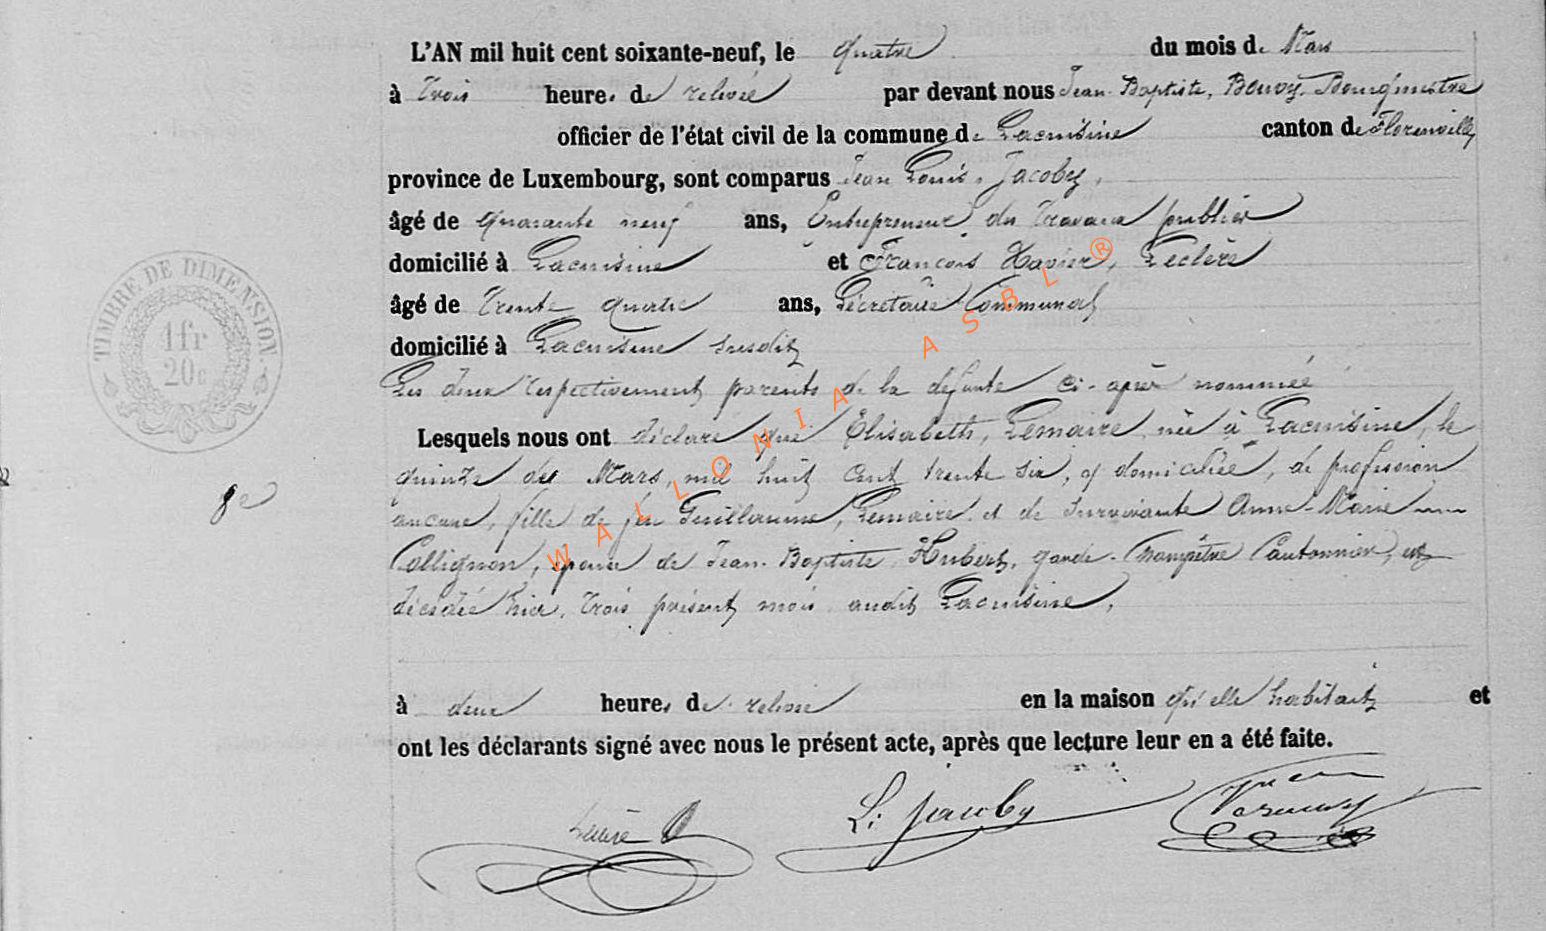 L'AN mil huit cent soixante-neuf, le quatre du mois de Mars
à trois heures de relevée par devant nous Jean-Baptiste, Bourgmestre
officier de l'état civil de la commune de Lacuisine canton de Florenville
province de Luxembourg, sont comparus Jean Louis, Jacoby,
âgé de quarante neuf ans, Entrepreneur de travaux publics
domicilié à Lacuisine et François Xavier, Leclère
âgé de trente quatre ans, Secrétaire Communal
domicilié à Lacuisine susdit
Les deux respectivement parents de la défunte ci-après nommée
Lesquels nous ont déclaré que Elisabeth, Lemaire née à Lacuisine, le
quinze du Mars, mil huit cent trente six, y domiciliée, de profession
aucune, fille de feu Guillaume, Lemaire et de survivante Anne-Marie
Collignon, épouse de Jean-Baptiste Hubert, garde-Champêtre Cantonnier, est
décédée hier, trois présent mois audit Lacuisine,
à deux heures de relevée en la maison qu'elle habitait et
ont les déclarants signé avec nous le présent acte, après que lecture leur en a été faite.
L. Jacoby
TIMBRE DE DIMENSION.
1 fr
20c
8e
WALLONIA ASBL ®